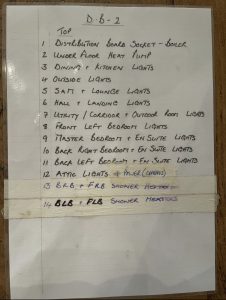 DB-2
TOP
1 DISTRIBUTION BOARD SOCKET - BOILER
2 UNDER FLOOR HEAT PUMP
3 DINING + KITCHEN LIGHTS
4 OUTSIDE LIGHTS
5 SAM + LOUNGE LIGHTS
6 HALL + LANDING LIGHTS
7 UTILITY / CORRIDOR + OUTDOOR ROOM LIGHTS
8 FRONT LEFT BEDROOM LIGHTS
9 MASTER BEDROOM + EN SUITE LIGHTS
10 BACK RIGHT BEDROOM + EN SUITE LIGHTS
11 BACK LEFT BEDROOM + EN SUITE LIGHTS
12 ATTIC LIGHTS +
13 BRB + FRB SHOWER HEATERS
14 BLB + FLB SHOWER HEATERS